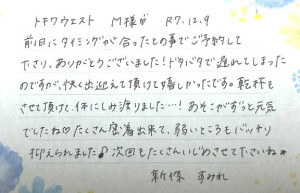 トキワウエスト M様 R7.12.9
前日にタイミングが合ったとの事でご予約して
下さり、ありがとうございました!ドタバタで遅れてしまった
のですが、快く出迎えて頂けて嬉しかったです。乾杯も
させて頂けて、体にしみ渡りました…!あそこがずっと元気
でしたね♡たくさん密着出来て、弱いところもバッチリ
抑えられました♪次回もたくさんいじめさせて下さいね
新條 すみれ